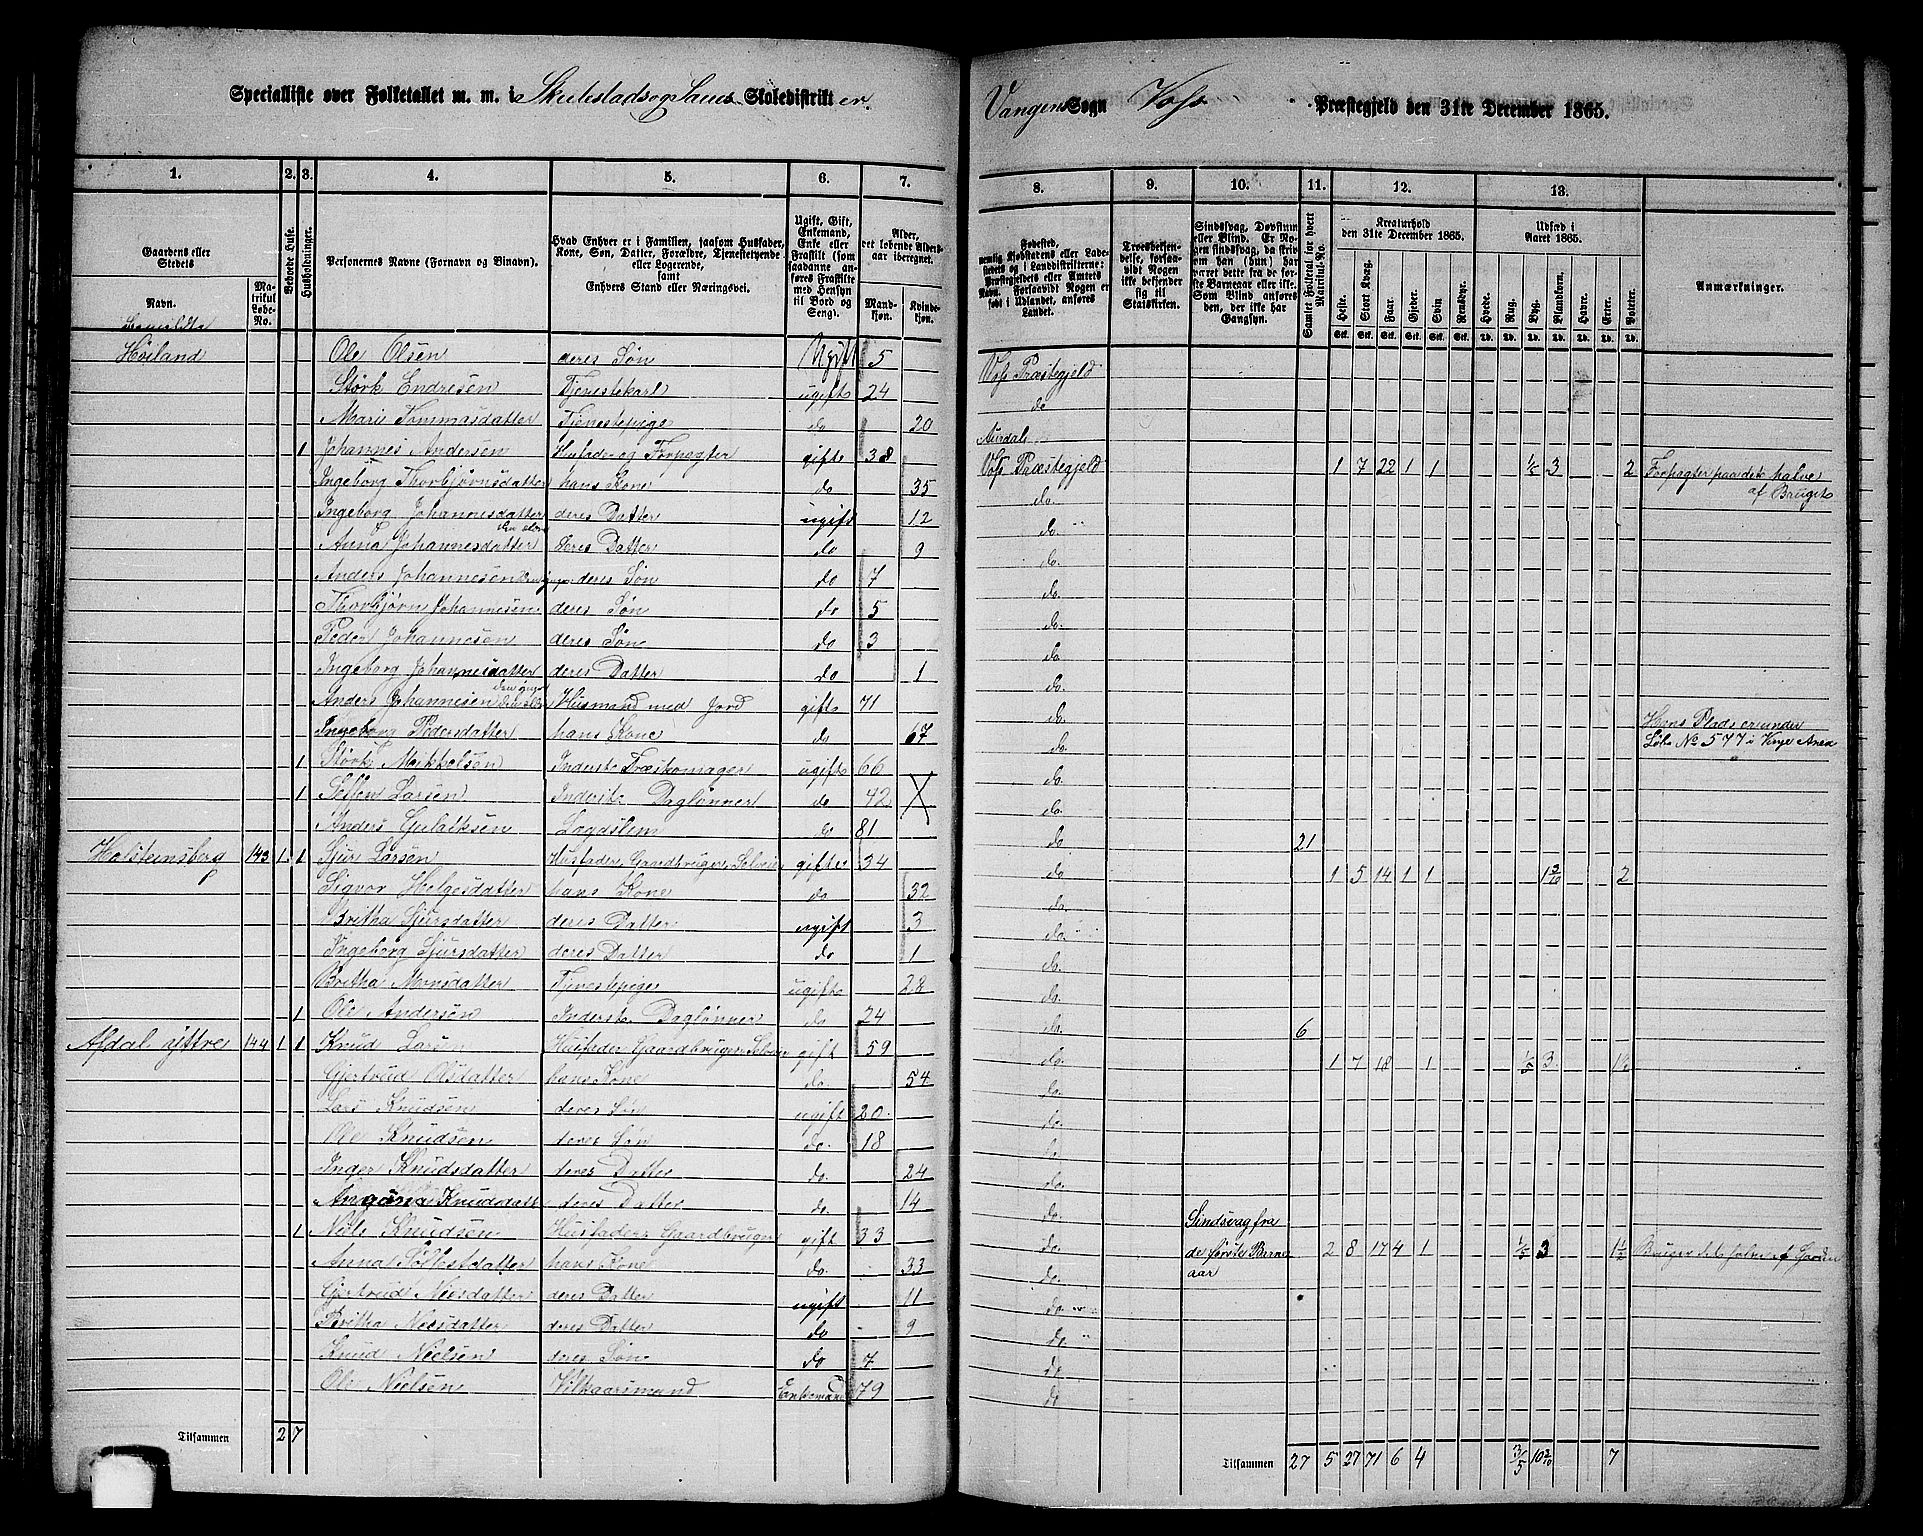 Specialliste over Folketallet m. m. i Skulestads og Saue Skoledistrikt er. Vangens Sogn Voss Præstegjeld den 31te December 1865.
1. 2. 3. 4. 5. 6. 7. 8. 9. 10. 11. 12. 13.
Gaardens eller Stedets Navn. Matrikul Løbe-No. Beboede Huse. Husholdninger. Personernes Navne (Fornavn og Binavn). Hvad Enhver er i Familien, saasom Husfader, Kone, Søn, Datter, Forældre, Tjenestetyende eller Logerende, samt Enhvers Stand eller Næringsvei. Ugift, Gift, Enkemand, Enke eller Fraskilt (som saadanne anføres Fraskilte med Hensyn til Bord og Seng). Alder, det løbende Aldersaar iberegnet. Mandkjøn. Kvindekjøn.
Fødested, Troesbekjendelse, forsaavidt Nogen ikke bekjender sig til Statskirken. Sindssvag, Døvstum eller Blind. Samlet Folketal for hvert Matrikul-No. Kreaturhold den 31te December 1865. Heste. Stort Kvæg. Faar. Gjeder. Svin. Rensdyr. Udsæd i Aaret 1865. Hvede. Rug. Byg. Blandkorn. Havre. Erter. Poteter. Anmærkninger.
Høiland Ole Olsen deres Søn Ugift 5 Voss Præstegjeld
Størk Endresen Tjenestekarl ugift 24 do
Mari Tommasdatter Tjenestepige do 20 Aurdal
1 Johannes Andersen Husfader og Forpagter gift 38 Voss Præstegjeld 1 7 22 1 1 1/5 3 2 Forpagter paa det halve af Bruget
Ingeborg Thorbjørnsdatter hans Kone do 35 do.
Ingeborg Johannesdatter den eldre deres Datter ugift 12 do
Anna Johannesdatter deres Datter do 9 do.
Anders Johannesen den yngre deres Søn do 7 do.
Thorbjørn Johannesen deres Søn do 5 do.
Peder Johannesen deres Søn do 3 do.
Ingeborg Johannesdatter den yngre deres Datter do 1 do.
Anders Johannesen den eldre Husmand med Jord gift 71 do. Hans Plads er under Løb No 577 i
Ingeborg Pedersdatter hans Kone do 67 do.
1 Størk Mikkelsen Inderst Træskomager ugift 66 do.
1 Lars Larsen Daglønner do 42 do.
Anders Gulaksen Lægdslem do 81 do 21
Holsteinsberg 143 1 1 Sjur Larsen Husfader, Gaardbruger, Selveier gift 34 do 1 5 14 1 1 1 2/10 2
Sigvor Helgesdatter hans Kone do 32 do.
Britha Sjursdatter deres Datter ugift 3 do.
Ingeborg Sjursdatter deres Datter do 1 do.
Britha Monsdatter Tjenestepige ugift 28 do.
1 Ole Andersen Inderst Daglønner do 24 do. 6
Afdal yttre 144 1 1 Knud Larsen Husfader Gaardbruger Selveier gift 59 do. 1 7 18 1 1/5 3
Gjertrud Olsdatter hans Kone do. 54 do.
Lars Knudsen deres Søn ugift 20 do.
Ole Knudsen deres Søn do. 18 do.
Inger Knudsdatter deres Datter do. 24 do.
Knudsdatt deres Datter do. 14 do. Sindsvag fra
1 Niels Knudsen Husfader Gaardbruger gift 33 do. de første Barne 2 8 17 4 1 1/5 3 1 1/2 Bruger det halve af Gaarden
Anna Sølfestdatter hans Kone do. 33 do. aar
Gjertrud Nielsdatter deres Datter ugift 11 do
Britha Nielsdatter deres Datter do 9 do.
Knud Nielsen deres Søn do 7 do
Ole Nielsen Vilkaarsmand Enkemand 79 do
Tilsammen 2 7 Tilsammen 27 5 27 71 6 4 3/5 10 2/10 7